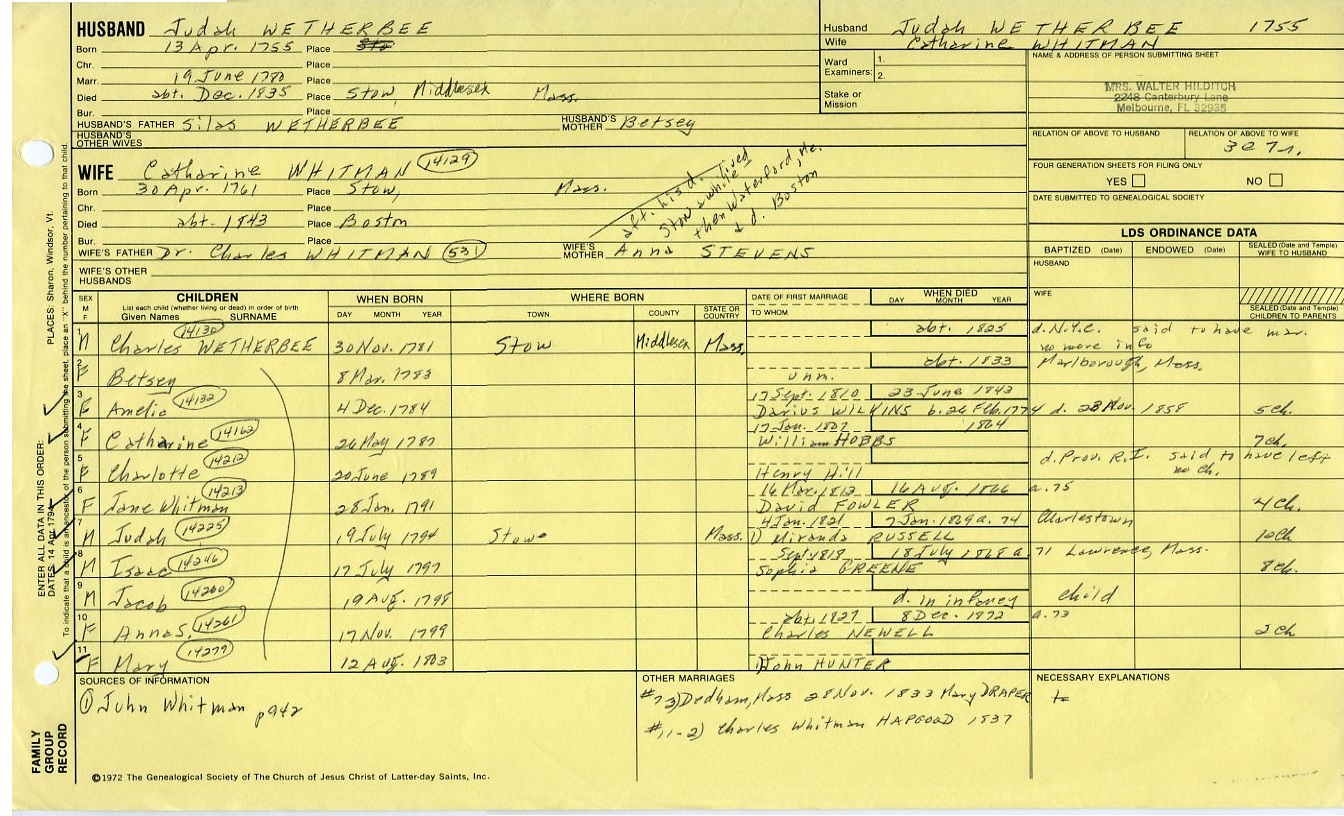 HUSBAND Judah WETHERBEE
Born 13 Apr. 1755 Place
Chr. Place
Marr. 19 June 1780 Place
Died abt. Dec. 1835 Place Stow, Middlesex Mass.
Bur. Place
HUSBAND'S FATHER Silas WETHERBEE HUSBAND'S MOTHER Betsey
HUSBAND'S OTHER WIVES
WIFE Catharine WHITMAN 14129
Born 30 Apr. 1761 Place Stow, Mass.
Chr. Place
Died abt. 1843 Place Boston
Bur. Place
aft. his d. lived
Stow awhile
then Waterford, Me.
d. Boston
WIFE'S FATHER Dr. Charles WHITMAN 53 WIFE'S MOTHER Anna STEVENS
WIFE'S OTHER HUSBANDS
Husband Judah WETHERBEE 1755
Wife Catharine WHITMAN
Ward Examiners: 1.
2.
Stake or Mission
NAME & ADDRESS OF PERSON SUBMITTING SHEET
MRS. WALTER HILDITCH
2248 Canterbury Lane
Melbourne, FL 32935
RELATION OF ABOVE TO HUSBAND RELATION OF ABOVE TO WIFE
FOUR GENERATION SHEETS FOR FILING ONLY
YES NO
DATE SUBMITTED TO GENEALOGICAL SOCIETY
LDS ORDINANCE DATA
BAPTIZED (Date) ENDOWED (Date) SEALED (Date and Temple) WIFE TO HUSBAND
HUSBAND
WIFE
SEALED (Date and Temple) CHILDREN TO PARENTS
SEX M F CHILDREN List each child (whether living or dead) in order of birth Given Names SURNAME
WHEN BORN DAY MONTH YEAR
WHERE BORN TOWN COUNTY STATE OR COUNTRY
DATE OF FIRST MARRIAGE TO WHOM
WHEN DIED DAY MONTH YEAR
1 M Charles WETHERBEE 14130 30 Nov. 1781 Stow Middlesex Mass. abt. 1825 d. N.Y.C. said to have mar. no more info
2 F Betsey 8 Mar. 1783 unm. abt. 1833 Marlborough, Mass.
3 F Amelia 14132 4 Dec. 1784 17 Sept. 1810 Darius WILKINS b. 26 Feb. 1774 d. 28 Nov. 1858 23 June 1843 5 ch.
4 F Catharine 14162 26 May 1787 17 Jan. 1807 William HOBBS 1864 7 ch.
5 F Charlotte 14212 20 June 1789 Henry Hill d. Prov. R.I. said to have left no ch.
6 F Jane Whitman 14213 28 Jan. 1791 16 Mar. 1812 David FOWLER 16 Aug. 1866 a. 75 4 ch.
7 M Judah 14225 19 July 1794 Stow Mass. 4 Jan. 1821 1) Miranda RUSSELL 7 Jan. 1869 a. 74 Charlestown 10 ch
8 M Isaac 14246 17 July 1797 Sept. 1819 Sophia GREENE 18 July 1868 a. 71 Lawrence, Mass. 8 ch.
9 M Jacob 14260 19 Aug. 1798 d. in infancy child
10 F Anna S. 14261 17 Nov. 1799 abt. 1827 Charles NEWELL 8 Dec. 1972 a. 73 2 ch
11 F Mary 14279 12 Aug. 1803 1) John HUNTER
SOURCES OF INFORMATION
① John Whitman p942
OTHER MARRIAGES
#7 2) Dedham, Mass 28 Nov. 1833 Mary DRAPER
#11-2) Charles Whitman HAPGOOD 1837
NECESSARY EXPLANATIONS
©1972 The Genealogical Society of The Church of Jesus Christ of Latter-day Saints, Inc.
FAMILY GROUP RECORD
ENTER ALL DATA IN THIS ORDER:
DATES: 14 Apr 1794 PLACES: Sharon, Windsor, Vt.
To indicate that a child is an ancestor of the person submitting the sheet, place an "X" behind the number pertaining to that child.